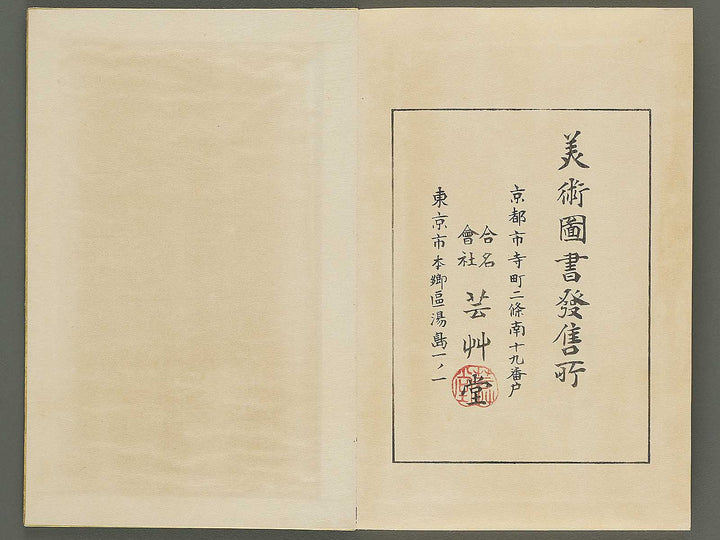 美術圖書發售所
京都市寺町二條南十九番戸
合名
會社
芸艸堂
東京市本郷區湯島一ノ一